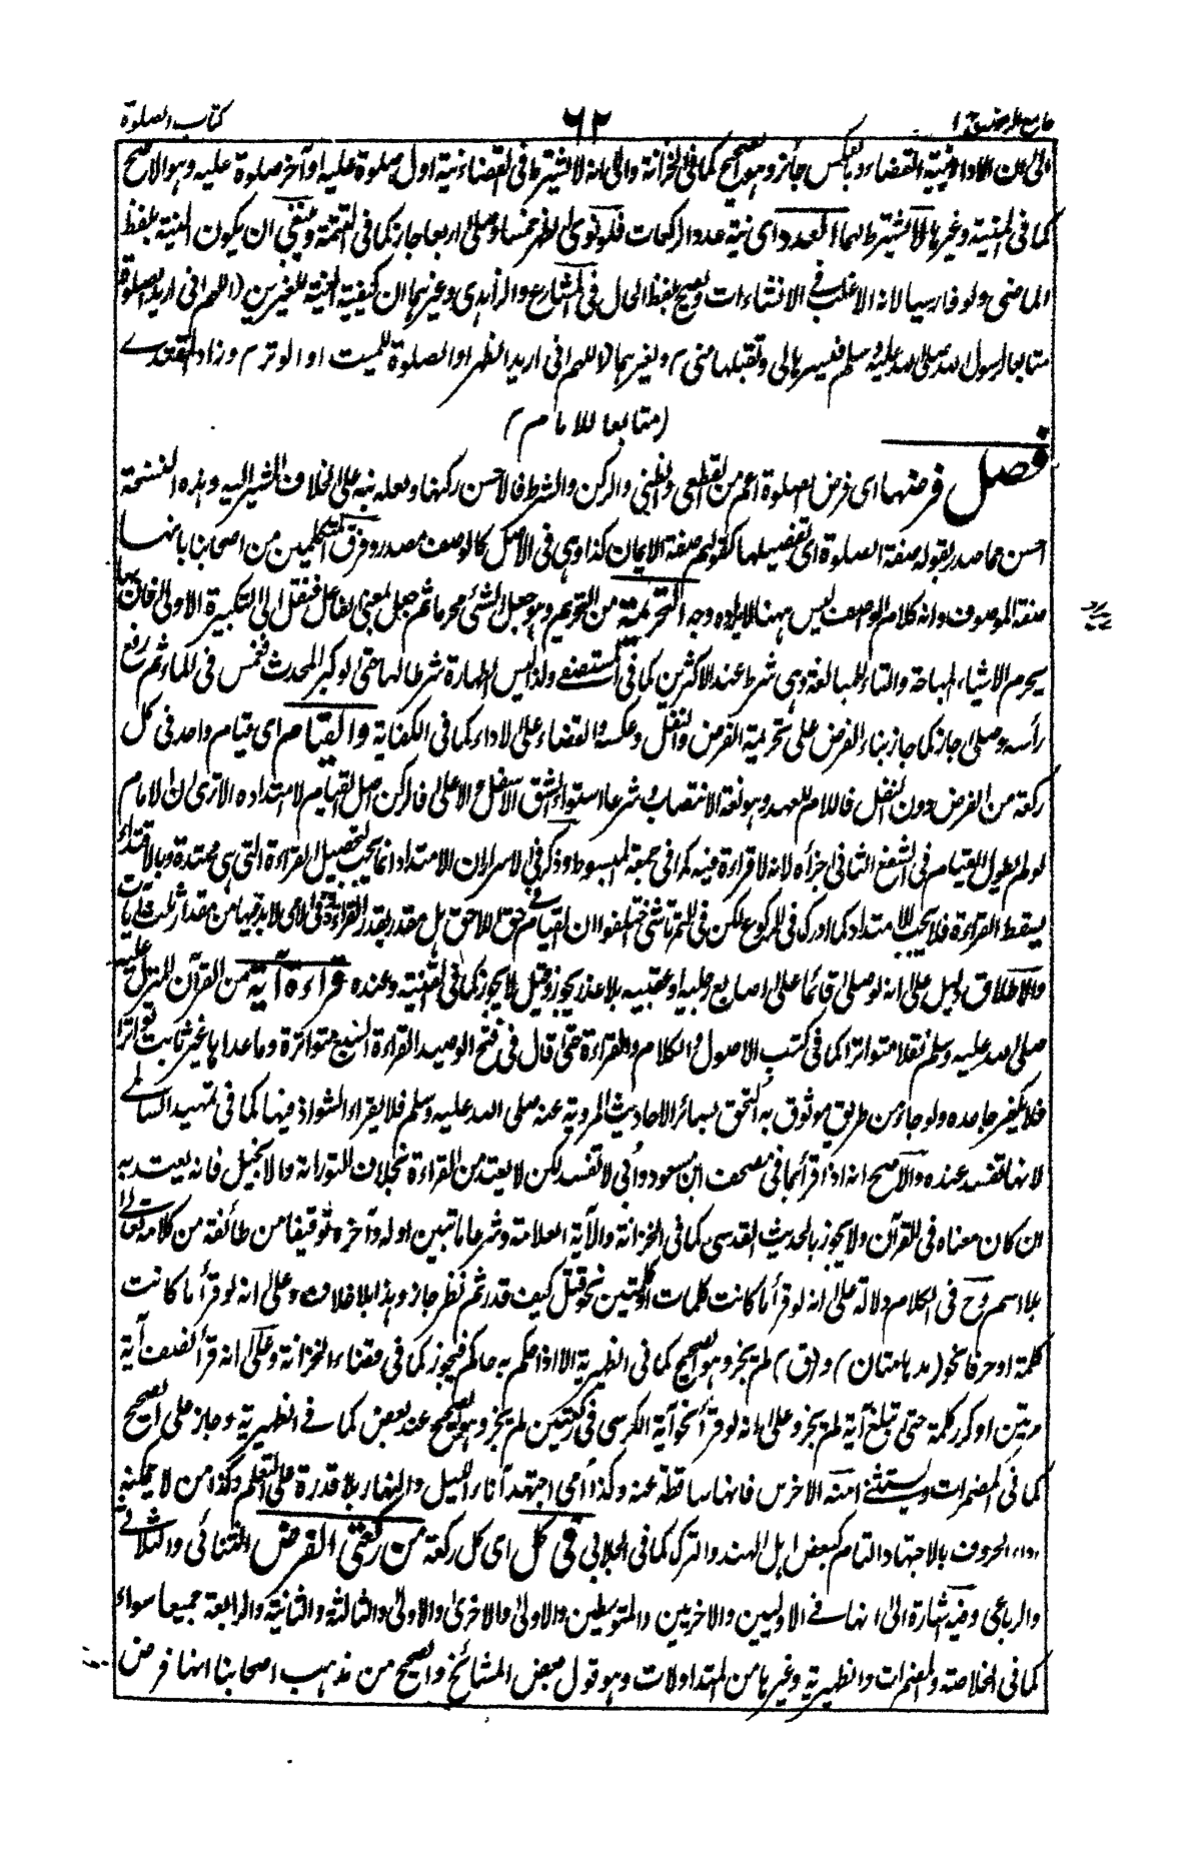 جامع الرموز ج ١
٦٢
كتاب الصلوة
والى ان الاداء بنية القضاء وبالعكس جائز وهو الصحيح كما فى الخزانة والى انه لا يشترط فى القضاء نية اول صلوة عليه او آخر صلوة عليه وهو الاصح
كما فى المنية وغيرها لا يشترط لهما العدد اى نية عدد الركعات فلو نوى الظهر خمسا وصلى اربعا جاز كما فى التتمة وينبغى ان يكون النية بلفظ
الماضى ولو فارسيا لانه الاغلب فى الانشاءات ويصح بلفظ الحال فى المشارع والزاهدى وغيرهما ان كيفية النية للفجرين (اللهم انى اريد الصلوة
متابعا لرسول الله صلى الله عليه وسلم فيسرها لى وتقبلها منى) ولغيرهما (اللهم انى اريد الظهر او الصلوة للميت او الوتر) وزاد المقتدى
(متابعا للامام)
فصل فرضها اى فرض الصلوة اعم من القطعى والظنى والركن والشرط فالاحسن ركنها ولعله نبه على الخلاف المشير اليه وهذه النسخة
احسن مما صدر بقوله صفة الصلوة اى تفصيلها كقولهم صفة الايمان كذا وهى فى الاصل كالوصف مصدر وفرق المتكلمين من اصحابنا بانها
صفة الموصوف وانه كلام الوصف ليس ههنا لايراده وجه التحريمة من التحريم وهو جعل الشئ محرما ثم جعل بمعنى الفاعل فنقل الى التكبيرة الاولى فانها
يحرم الاشياء المباحة والتاء للمبالغة وهى شرط عند الاكثرين كما فى المستصفى ولذا ليس الطهارة شرطا لها حتى لو كبر المحدث فغمس فى الماء ثم رفع
رأسه وصلى جاز كما جاز بناء الفرض على تحريمة الفرض والنفل وعكسه والقضاء على الاداء كما فى الكفاية والقيام اى قيام واحد فى كل
ركعة من الفرض دون النفل فاللام للعهد وهو لغة الانتصاب وشرعا استواء الشق الاسفل والاعلى فالركن اصل القيام لا امتداده الا ترى ان الامام
لو لم يطول القيام فى الشفع الثانى اجزأه لانه لا قراءة فيه كما فى جمعة المبسوط وذكر فى الاسرار ان الامتداد انما يجب لتحصيل القراءة التى هى ممتدة وبالاقتداء
يسقط القراءة فلا يجب الامتداد كما ادركه فى الركوع لكن فى التمرتاشى اختلفوا ان القيام حق للاحق هل مقدر بقدر القراءة وفى الامى لابد فيها من مقدار ثلث آيات
والاطلاق دليل على انه لو صلى قائما على اصابع رجليه او عقبيه بلا عذر يجوز وقيل لا يجوز كما فى القنية وعنده قراءة آية من القرآن المنزل عليه
صلى الله عليه وسلم نقلا متواترا كما فى كتب الاصول والكلام والقراءة حتى قال فى فتح الوصيد القراءة السبع متواترة وما عداها غير ثابت تواترا
فلا يكفر جاحده ولو جاء من طريق موثوق به التحق بسائر الاحاديث المروية عنه صلى الله عليه وسلم فلا يقراء الشواذ فيها كما فى تمهيد السالمى
لانها تفسد عنده والاصح انه اذا قرأ بما فى مصحف ابن مسعود وأبى لا تفسد لكن لا يعتد من القراءة بخلاف التوراة والانجيل فانه يعتد به
ان كان معناه فى القرآن ولا يجوز بالحديث القدسى كما فى الخزانة والآية العلامة وشرعا ما تبين اوله وآخره توقيفا من طائفة من كلامه تعالى
بلا اسم وح فى الكلام دلالة على انه لو قرأ ما كانت كلمات او كلمتين نحو قتل كيف قدر ثم نظر جاز وهذا بلا خلاف وعلى انه لو قرأ ما كانت
كلمة او حرفا نحو (مدهامتان) و(ق) لم يجز وهو الصحيح كما فى الظهيرية الا اذا حكم به حاكم فيجوز كما فى قضاء الخزانة وعلى انه قرأ نصف آية
مرتين او كرر كلمة حتى تبلغ آية لم يجز وعلى انه لو قرأ نحو آية الكرسى فى ركعتين لم يجز وهو الصحيح عند بعض كما فى الظهيرية وجاز على الصحيح
كما فى المضمرات ويستثنى منه الاخرس فانها ساقطة عنه وكذا أمى اجتهد آناء الليل والنهار بلا قدرة على التعلم وكذا من لا يمكنه
اداء الحروف بالاجتهاد التام كبعض اهل الهند والترك كما فى الجلابى فى كل اى كل ركعة من ركعتى الفرض الثنائى والثلاثى
والرباعى وفيه اشارة الى انها فى الاوليين والاخريين والمتوسطين والاولى والاخرى والاولى والثالثة والثانية والرابعة جميعا سواء
كما فى الخلاصة والمضمرات والظهيرية وغيرها من المتداولات وهو قول بعض المشائخ والصحيح من مذهب اصحابنا انها فرض